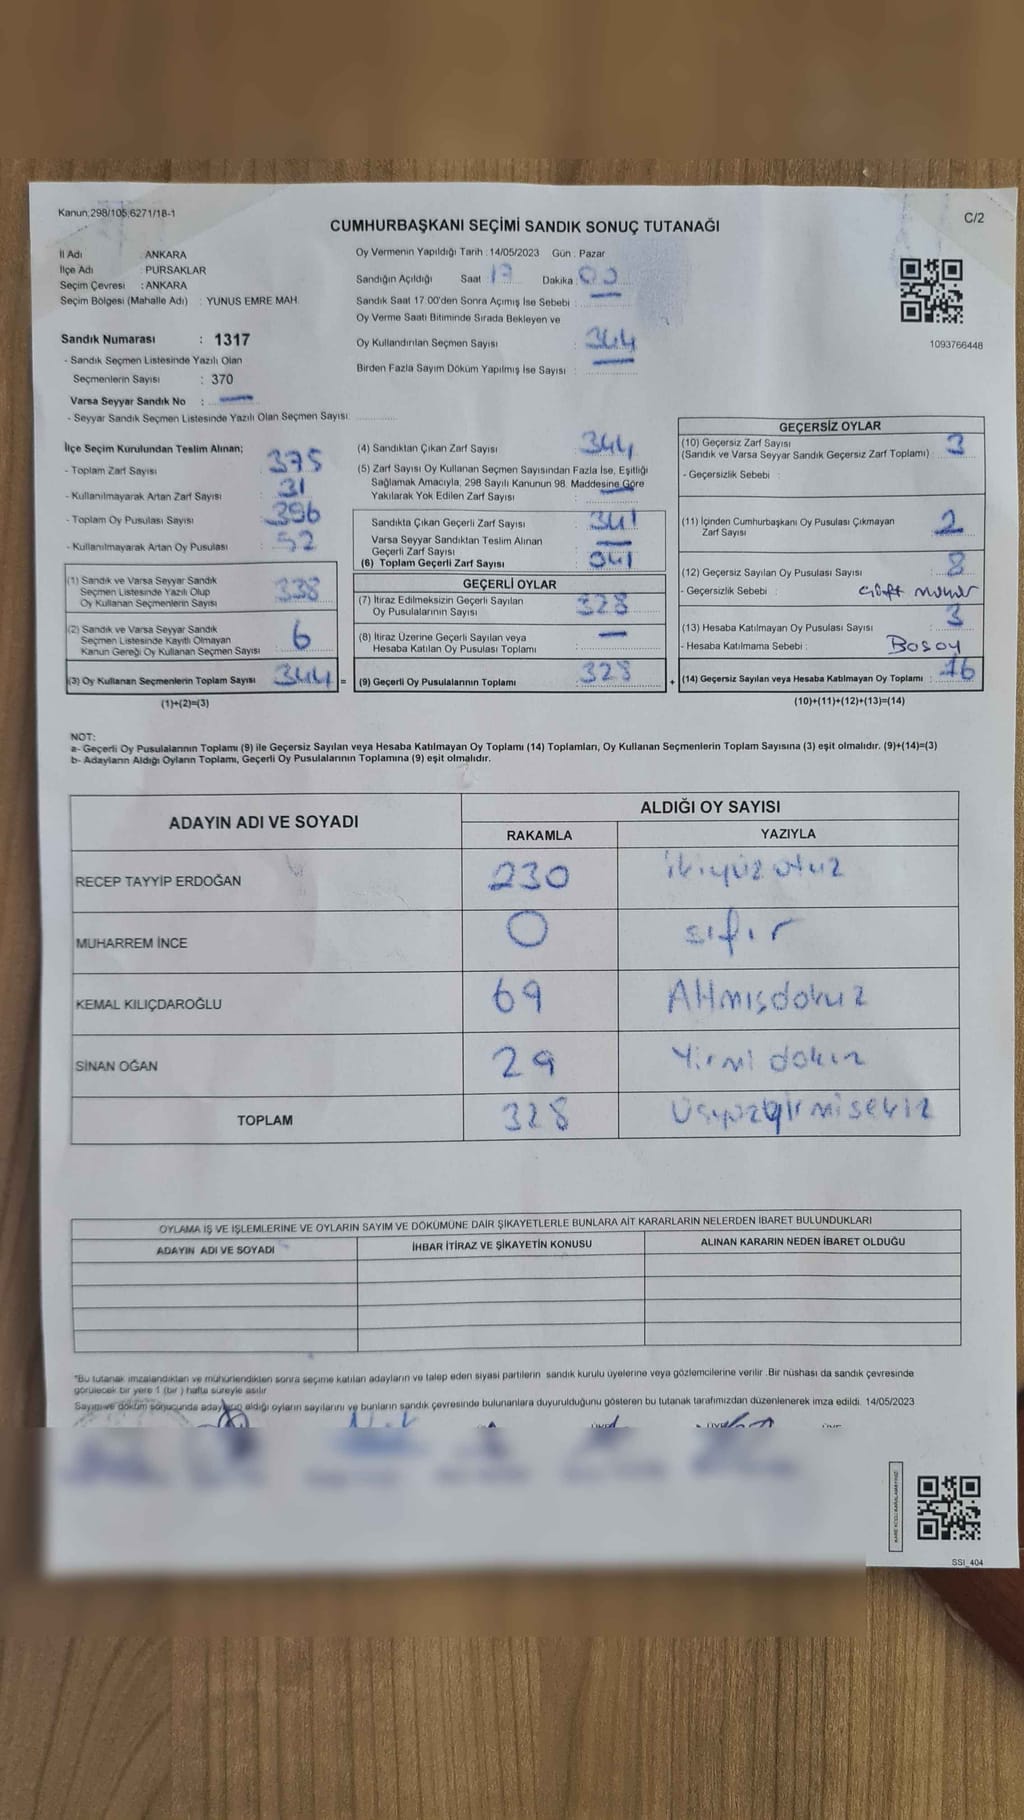 Kanun;298/105,6271/18-1
C/2
CUMHURBAŞKANI SEÇİMİ SANDIK SONUÇ TUTANAĞI
İl Adı : ANKARA
İlçe Adı : PURSAKLAR
Seçim Çevresi : ANKARA
Seçim Bölgesi (Mahalle Adı) : YUNUS EMRE MAH.
Sandık Numarası : 1317
- Sandık Seçmen Listesinde Yazılı Olan
Seçmenlerin Sayısı : 370
Varsa Seyyar Sandık No : —
- Seyyar Sandık Seçmen Listesinde Yazılı Olan Seçmen Sayısı
Oy Vermenin Yapıldığı Tarih : 14/05/2023 Gün : Pazar
Sandığın Açıldığı Saat 17 Dakika : 00
Sandık Saat 17:00'den Sonra Açımış İse Sebebi : —
Oy Verme Saati Bitiminde Sırada Bekleyen ve
Oy Kullandırılan Seçmen Sayısı : 344
Birden Fazla Sayım Döküm Yapılmış İse Sayısı : —
1093766448
İlçe Seçim Kurulundan Teslim Alınan;
- Toplam Zarf Sayısı : 375
- Kullanılmayarak Artan Zarf Sayısı : 31
- Toplam Oy Pusulası Sayısı : 396
- Kullanılmayarak Artan Oy Pusulası : 52
(1) Sandık ve Varsa Seyyar Sandık
Seçmen Listesinde Yazılı Olup
Oy Kullanan Seçmenlerin Sayısı : 338
(2) Sandık ve Varsa Seyyar Sandık
Seçmen Listesinde Kayıtlı Olmayan
Kanun Gereği Oy Kullanan Seçmen Sayısı : 6
(3) Oy Kullanan Seçmenlerin Toplam Sayısı : 344 =
(1)+(2)=(3)
(4) Sandıktan Çıkan Zarf Sayısı : 344
(5) Zarf Sayısı Oy Kullanan Seçmen Sayısından Fazla İse, Eşitliği
Sağlamak Amacıyla, 298 Sayılı Kanunun 98. Maddesine Göre
Yakılarak Yok Edilen Zarf Sayısı : —
Sandıkta Çıkan Geçerli Zarf Sayısı : 341
Varsa Seyyar Sandıktan Teslim Alınan
Geçerli Zarf Sayısı : —
(6) Toplam Geçerli Zarf Sayısı : 341
GEÇERLİ OYLAR
(7) İtiraz Edilmeksizin Geçerli Sayılan
Oy Pusulalarının Sayısı : 328
(8) İtiraz Üzerine Geçerli Sayılan veya
Hesaba Katılan Oy Pusulası Toplamı : —
(9) Geçerli Oy Pusulalarının Toplamı : 328 +
GEÇERSİZ OYLAR
(10) Geçersiz Zarf Sayısı
(Sandık ve Varsa Seyyar Sandık Geçersiz Zarf Toplamı) : 3
- Geçersizlik Sebebi :
(11) İçinden Cumhurbaşkanı Oy Pusulası Çıkmayan
Zarf Sayısı : 2
(12) Geçersiz Sayılan Oy Pusulası Sayısı : 8
- Geçersizlik Sebebi : Çift mühür
(13) Hesaba Katılmayan Oy Pusulası Sayısı : 3
- Hesaba Katılmama Sebebi :
(14) Geçersiz Sayılan veya Hesaba Katılmayan Oy Toplamı : 16
(10)+(11)+(12)+(13)=(14)
NOT:
a- Geçerli Oy Pusulalarının Toplamı (9) ile Geçersiz Sayılan veya Hesaba Katılmayan Oy Toplamı (14) Toplamları, Oy Kullanan Seçmenlerin Toplam Sayısına (3) eşit olmalıdır. (9)+(14)=(3)
b- Adayların Aldığı Oyların Toplamı, Geçerli Oy Pusulalarının Toplamına (9) eşit olmalıdır.
ADAYIN ADI VE SOYADI
ALDIĞI OY SAYISI
RAKAMLA YAZIYLA
RECEP TAYYİP ERDOĞAN 230 ikiyüz otuz
MUHARREM İNCE 0 sıfır
KEMAL KILIÇDAROĞLU 69 Altmışdokuz
SİNAN OĞAN 29 Yirmi dokuz
TOPLAM 328 Üçyüzyirmisekiz
OYLAMA İŞ VE İŞLEMLERİNE VE OYLARIN SAYIM VE DÖKÜMÜNE DAİR ŞİKAYETLERLE BUNLARA AİT KARARLARIN NELERDEN İBARET BULUNDUKLARI
ADAYIN ADI VE SOYADI İHBAR İTİRAZ VE ŞİKAYETİN KONUSU ALINAN KARARIN NEDEN İBARET OLDUĞU
*Bu tutanak imzalandıktan ve mühürlendikten sonra seçime katılan adayların ve talep eden siyasi partilerin sandık kurulu üyelerine veya gözlemcilerine verilir. Bir nüshası da sandık çevresinde
görülecek bir yere 1 (bir) hafta süreyle asılır
Sayım ve döküm sonucunda adayların aldığı oyların sayılarını ve bunların sandık çevresinde bulunanlara duyurulduğunu gösteren bu tutanak tarafımızdan düzenlenerek imza edildi. 14/05/2023
SSI_404